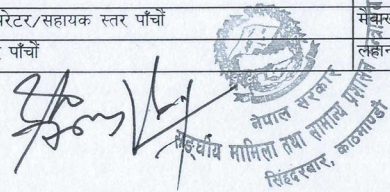 रेटर/सहायक स्तर पाँचौं
पाँचौं
नेपाल सरकार
सङ्घीय मामिला तथा सामान्य प्रशासन
सिंहदरबार, काठमाण्डौ